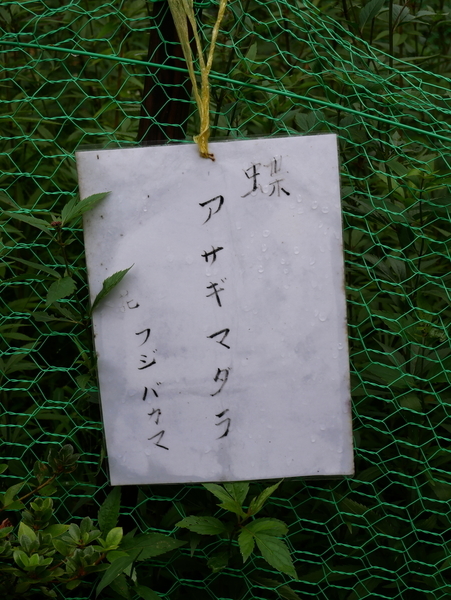 蝶
アサギマダラ
花 フジバカマ